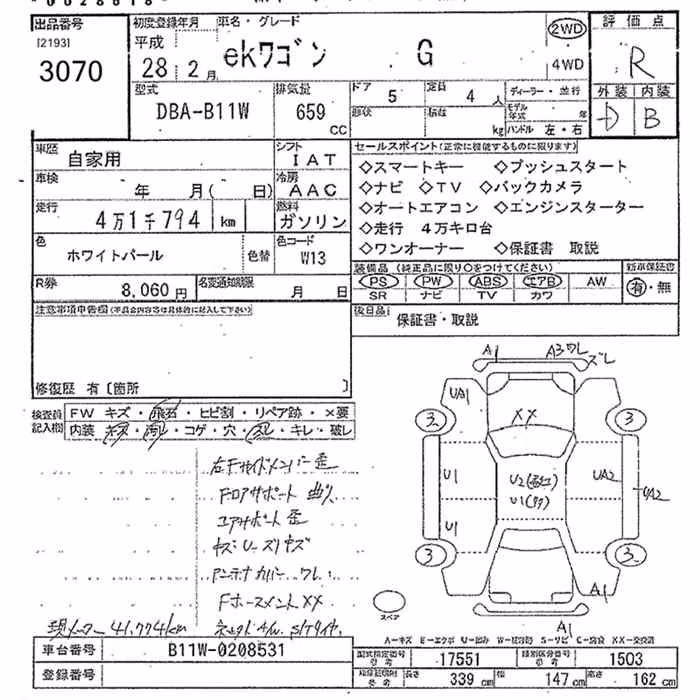 出品番号 初度登録年月 車名・グレード 2WD 評価点
[2193] 平成 ekワゴン G R
3070 28年 2月 4WD 外装 内装
型式 排気量 ドア 5 定員 4人 ディーラー・並行 D B
DBA-B11W 659 CC 形状 積載 kg モデル年式 年
ハンドル 左・右
車歴 自家用 シフト IAT セールスポイント(正常に機能するものに限ります)
車検 年 月( 日) 冷房 AAC ◇スマートキー ◇プッシュスタート
◇ナビ ◇TV ◇バックカメラ
走行 4万1千794 km 燃料 ガソリン ◇オートエアコン ◇エンジンスターター
◇走行 4万キロ台
色 ホワイトパール 色替 色コード W13 ◇ワンオーナー ◇保証書 取説
R券 8,060円 名変通知期限 月 日 装備品 (純正品に限り○をつけてください) 新車保証書
PS PW ABS エアB AW 有・無
SR ナビ TV カワ
注意事項申告欄(不具合内容等は具体的に記入して下さい) 後日品 保証書・取説
修復歴 有〔箇所 〕
検査員記入欄 FW キズ・飛石・ヒビ割・リペア跡・×要
内装 キズ・汚レ・コゲ・穴・スレ・キレ・破レ
A1 A3ワレ ズレ
UA1 XX
3 3
U1 U2 UA2 UA2
U1 U1
3 3
A1
A1
スペア
左右Fサイドメンバー歪
Fロアサポート 曲り
コアサポート 歪
キズ・U・スリキズ
アンテナカバー ワレ
Fホースメント XX
現メーター 41,774km
A−キズ E−エクボ U−凹み W−板金跡 S−サビ C−腐食 XX−交換済
車台番号 B11W-0208531 型式指定番号 参考 17551 類別区分番号 参考 1503
登録番号 参考 長さ 339 cm 幅 147 cm 高さ 162 cm